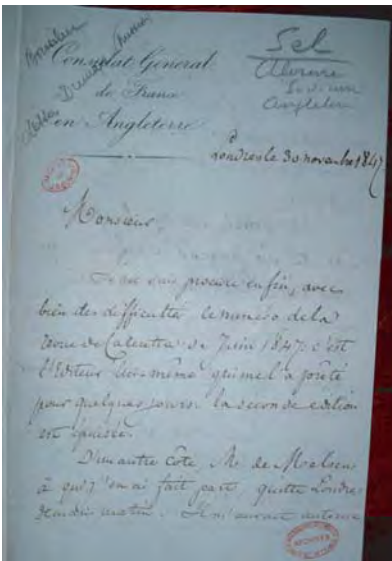 Monsieur
Dumas
Sel
Consulat Général
de France
en Angleterre
Angleterre
Londres le 30 novembre 1847
Monsieur,
Je me suis procuré enfin, avec
bien des difficultés le numéro de la
revue de Calcutta de Juin 1847. c'est
l'Editeur lui-même qui me l'a prêté
pour quelques jours. la seconde edition
est épuisée.
D'un autre coté, Mr de
à qui j'en ai fait part, quitte Londres
demain matin. Il
ARCHIVES